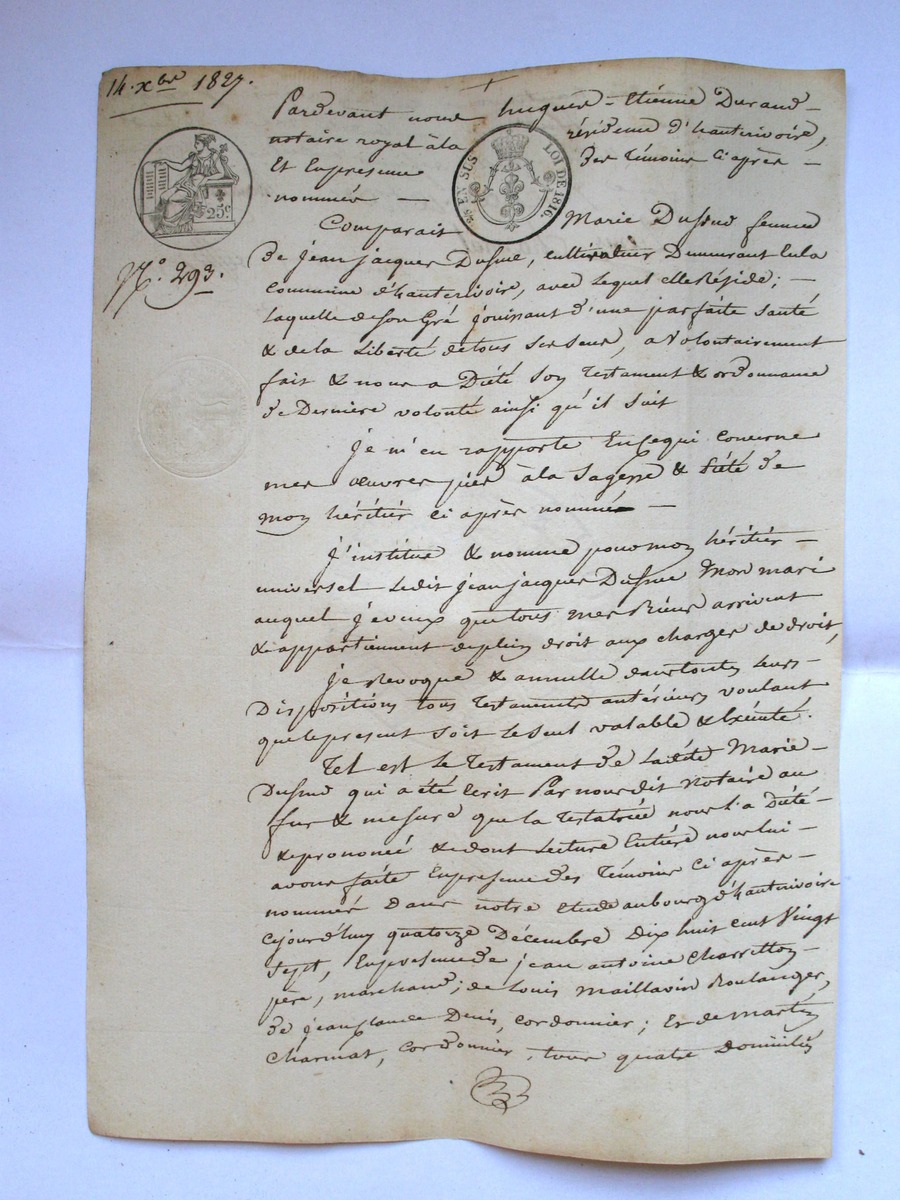 14. xbre 1827.
Pardevant nous hugues-Etiénne Durand-
notaire royal à la résidence d'hauterivoire,
Et En presence des témoins Ci après -
nommés -
25c
25c EN SUS
LOI DE 1816.
N.º 293.
Comparait Marie femme
de jean jacques cultivateur Demeurant En la
Commune d'hauterivoire, avec lequel elle Réside; -
laquelle de son Gré jouissant d'une parfaite santé
& de la Liberté de tous ses sens, a Volontairement
fait & nous a Dicté Son Testament & ordonnance
de Derniere volonté ainsi qu'il suit
Je m'en rapporte En ce qui concerne
mes œuvres pies à la Sagesse & piété de
mon héritier ci après nommé -
J'institue & nomme pour mon héritier -
universel Ledit jean jacques Mon mari
auquel je veux que tous mes Biens arrivent
& appartiennent de plein droit aux charges de droit,
je Revoque & annulle dans toutes leurs -
Dispositions tous Testaments antérieurs voulant
que le present soit le seul valable & Exécuté.
Tel est le Testament de Ladite Marie -
qui a été Ecrit Par nous dit Notaire au
fur & mesure que la Testatrice nous l'a Dicté -
& prononcé & dont Lecture Entiére nous lui -
avons faite En presence des Témoins Ci après -
nommés Dans notre Etude au bourg d'hauterivoire
Cejourd'huy quatorze Décembre Dix huit cent Vingt
Sept, En presence de jean antoine Charretton -
père, marchand; de Louis Maillavin Boulanger,
de jean Claude Denis, cordonnier; Et de Martin
Charmat, Cordonnier, tous quatre Domiciliés